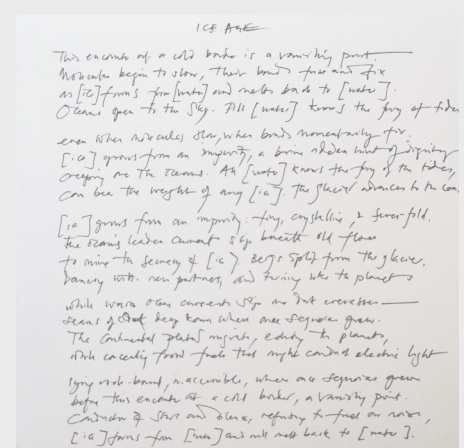 ICE AGE
This encounter at a cold border is a vanishing point.
Molecules begin to slow, their bonds fuse and fix
as [ice] forms from [water] and melts back to [water].
Oceans open to the sky. All [water] knows the fury of tides
even when molecules slow, when bonds momentarily fix.
[ice] grows from an impurity, a hint of dignity
creeping over the oceans. All [water] knows the fury of the tides,
can bear the weight of any [ice]. The glacier advances to the
[ice] grows from an impurity: tiny, crystalline, & seven-fold.
The ocean's leaden current slip beneath old floes
to the secrecy of [ice]. Bergs split from the glacier,
dancing with new partners, and turning like the planets
while warm ocean currents slip into dark crevasses—
seams of being known where once sequoias grew.
The continental plates migrate, the planets,
while concealing fossil fuels that might conduct electric light
lying rock-bound, inaccessible, where once sequoias grew
before this encounter at a cold border, a vanishing point.
Conductor of stars and silence, refusing to fuel or noise,
[ice] forms from [water] and will melt back to [water].